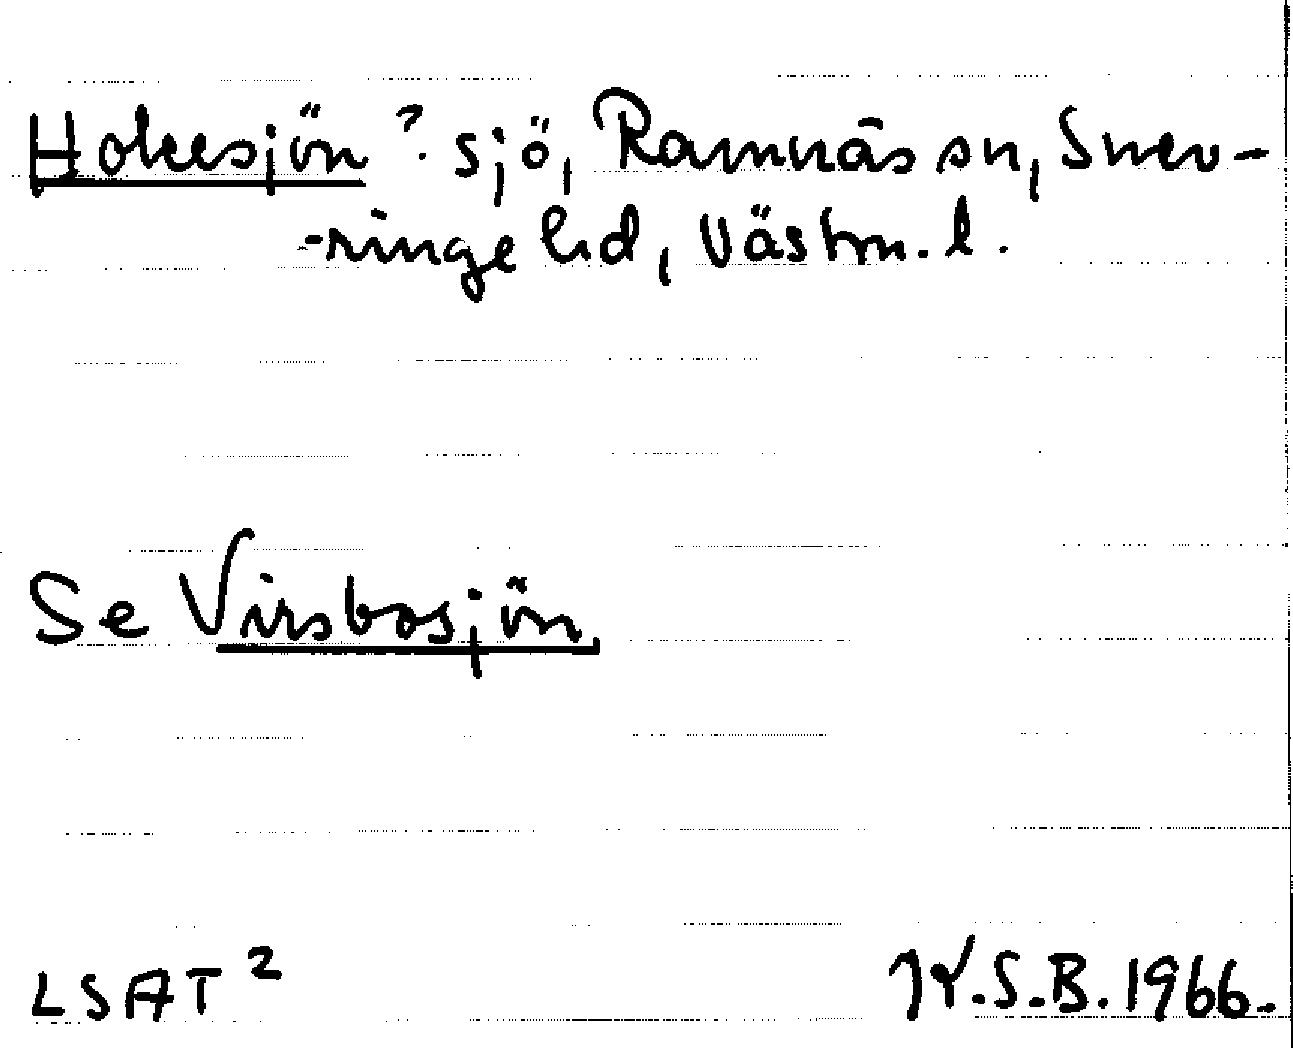 Hokesjön? sjö, Ramnäs sn, Snev-
-ringe hd, Västm. l.
Se Virsbosjön.
LSAT²
K.S.B. 1966.